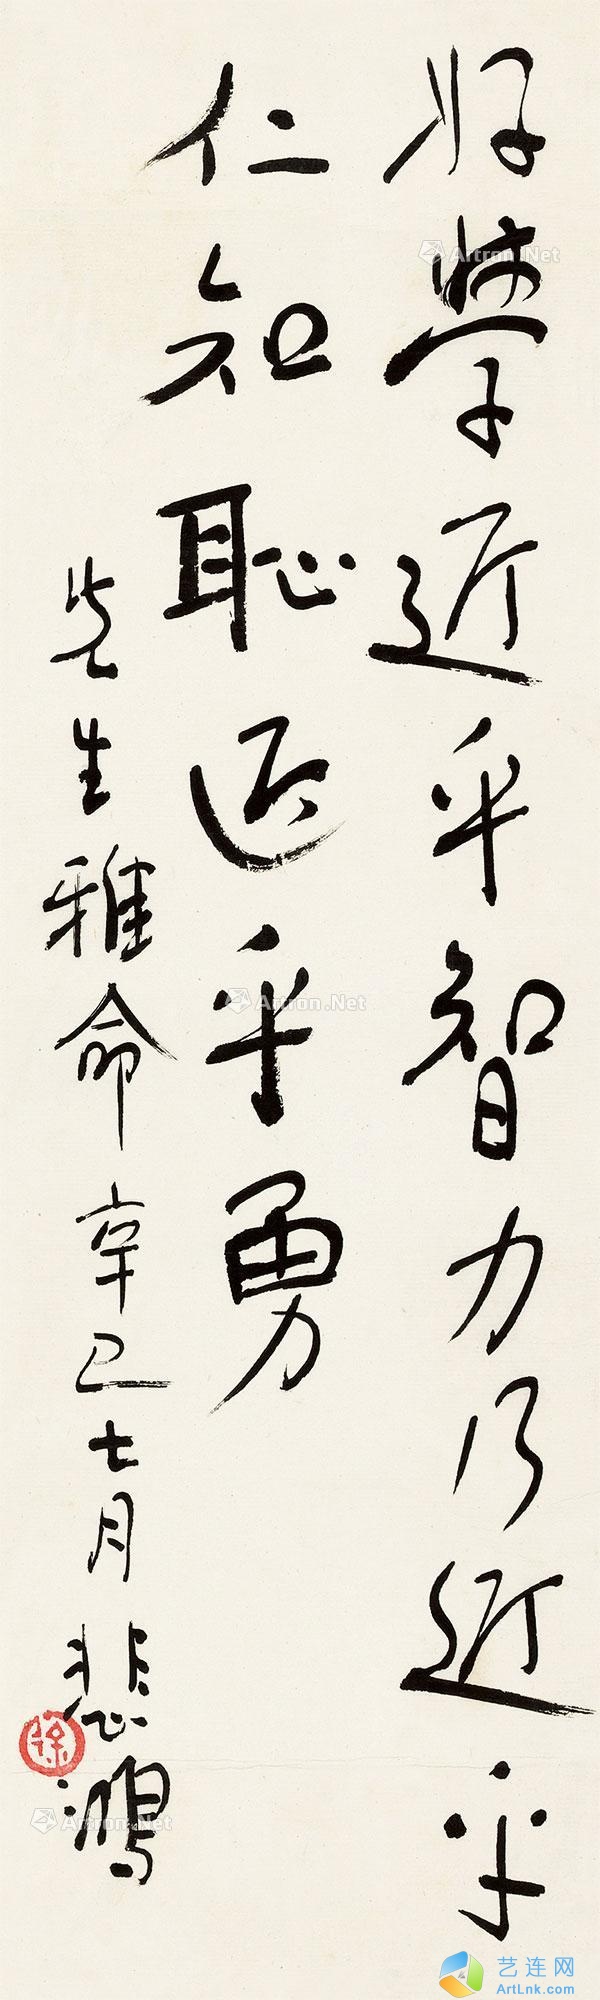 好學近乎智力行近乎
仁知恥近乎勇
先生雅命辛巳七月悲鴻
徐
Artron.Net
Artron.Net
Artron.Net
Artron.Net
艺连网
ArtLnk.com